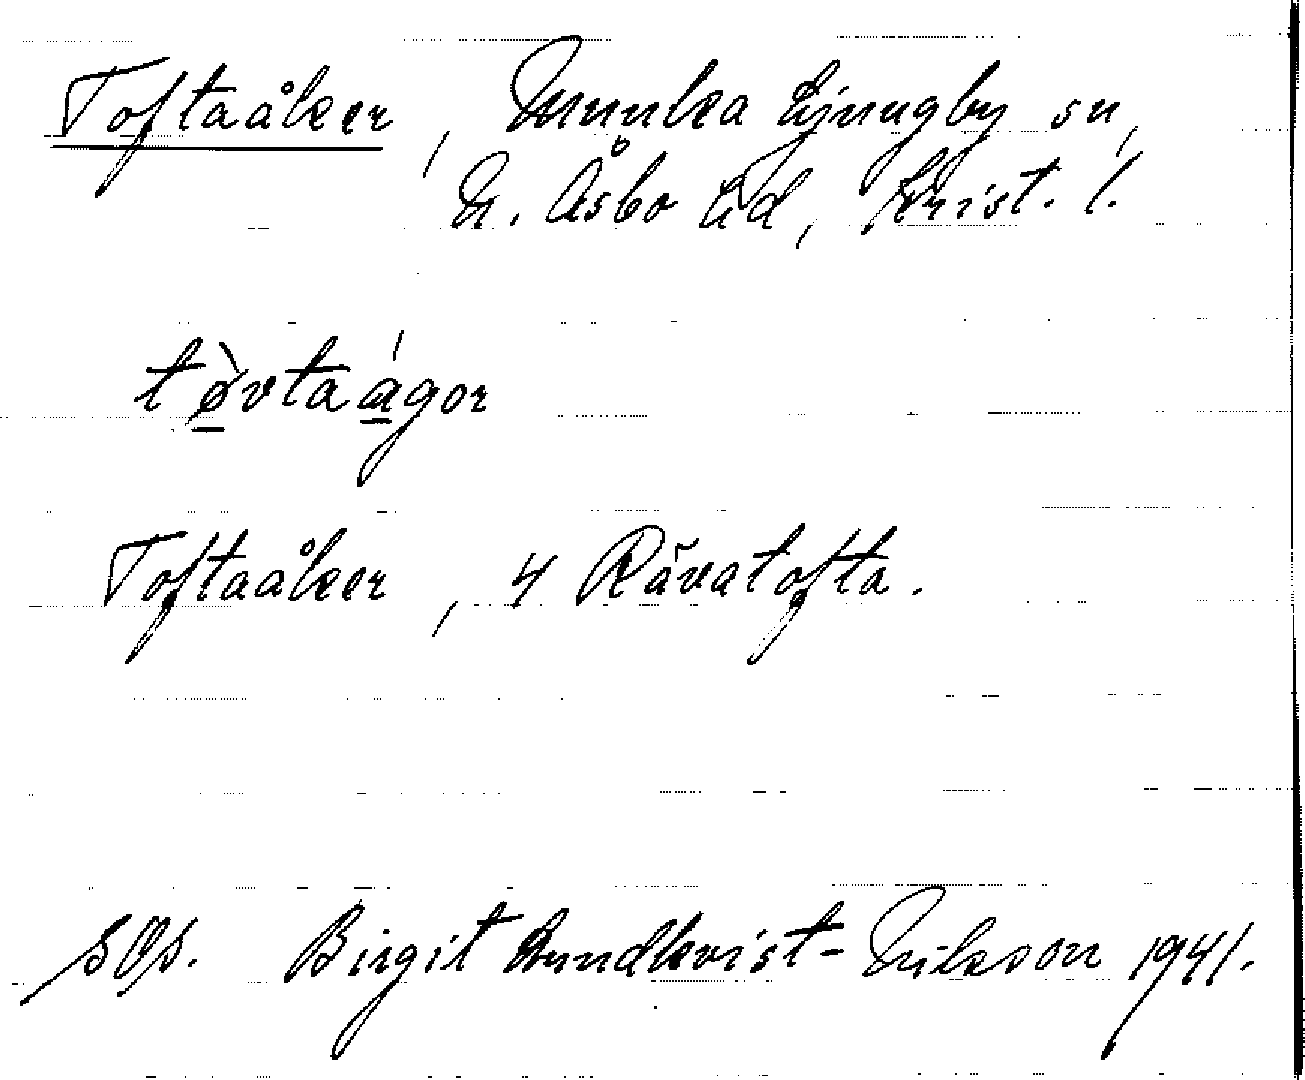 Toftaåker, Munka Ljungby sn,
N. Åsbo hd, Krist. l.
tø̀vtaágor
Toftaåker, 4 Rävatofta.
SOS. Birgit Lundkvist-Nilsson 1941.